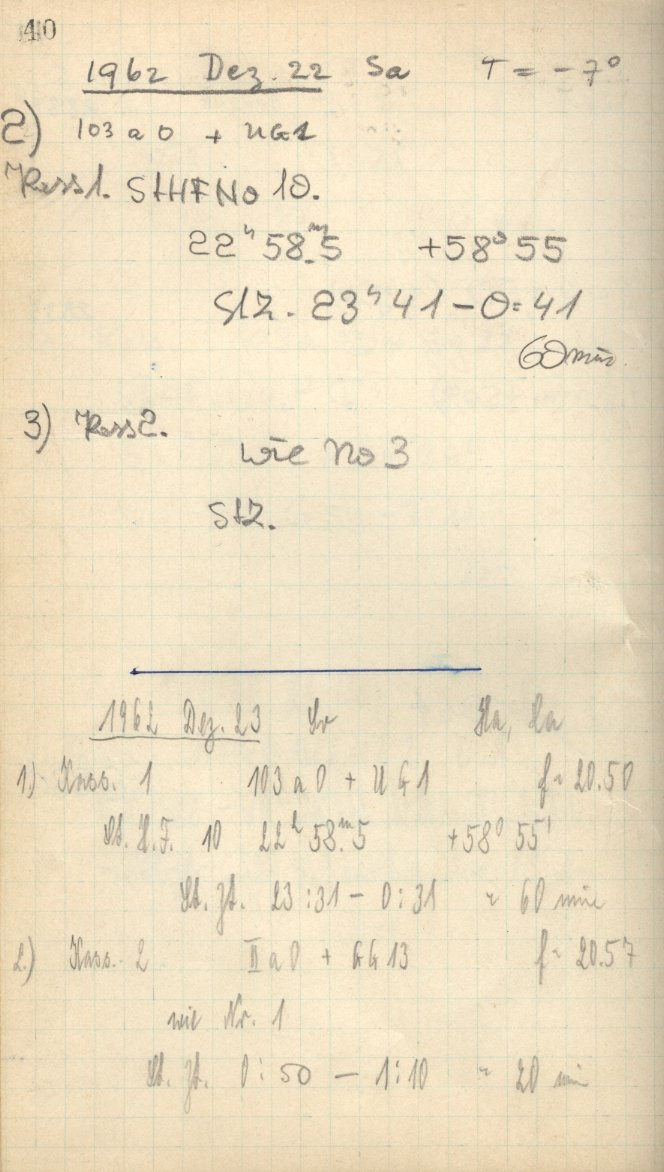 40
1962 Dez. 22 Sa T = - 7°
2) 103 a O + UG1
Kass1. StHF No 10.
22ʰ 58.ᵐ5 +58° 55
StZ. 23ʰ 41 - 0: 41
60 min
3) Kass2.
wie No 3
StZ.
1962 Dez. 23 So
1) Kass. 1 103 a O + UG1 f = 20.50
St. H.F. 10 22ʰ 58.ᵐ5 +58° 55'
St. Zt. 23:31 - 0:31 = 60 min
2.) Kass. 2 II a O + GG 13 f = 20.57
wie Nr. 1
St. Zt. 0:50 - 1:10 = 20 min